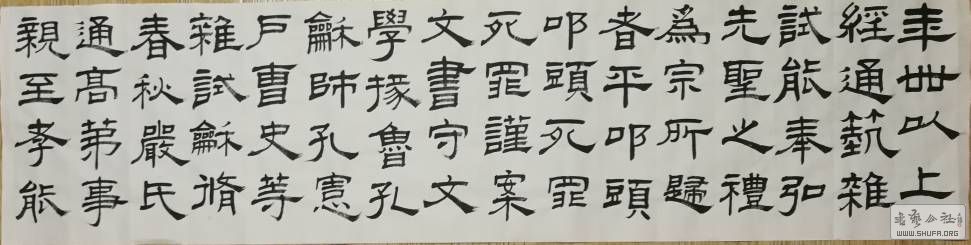 年卌以上
經通萟雜
試能奉弘
先聖之禮
爲宗所歸
者平叩頭
叩頭死罪
死罪謹案
文書守文
學掾魯孔
龢師孔憲
戶曹史等
雜試龢脩
春秋嚴氏
通高第事
親至孝能
書藝公社
WWW.SHUFA.ORG